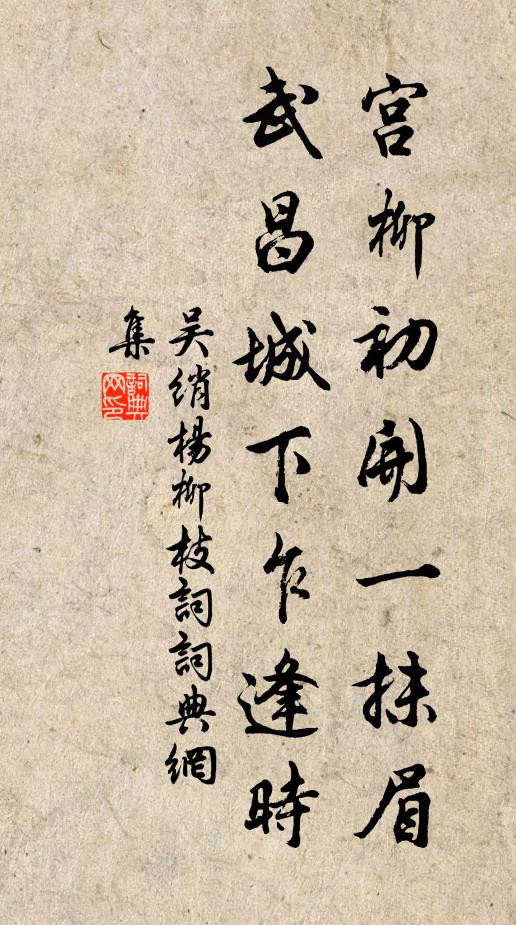 宫柳初開一抹眉
武昌城下乍逢時
吴綃楊柳枝詞詞典網
集
詞典
网印